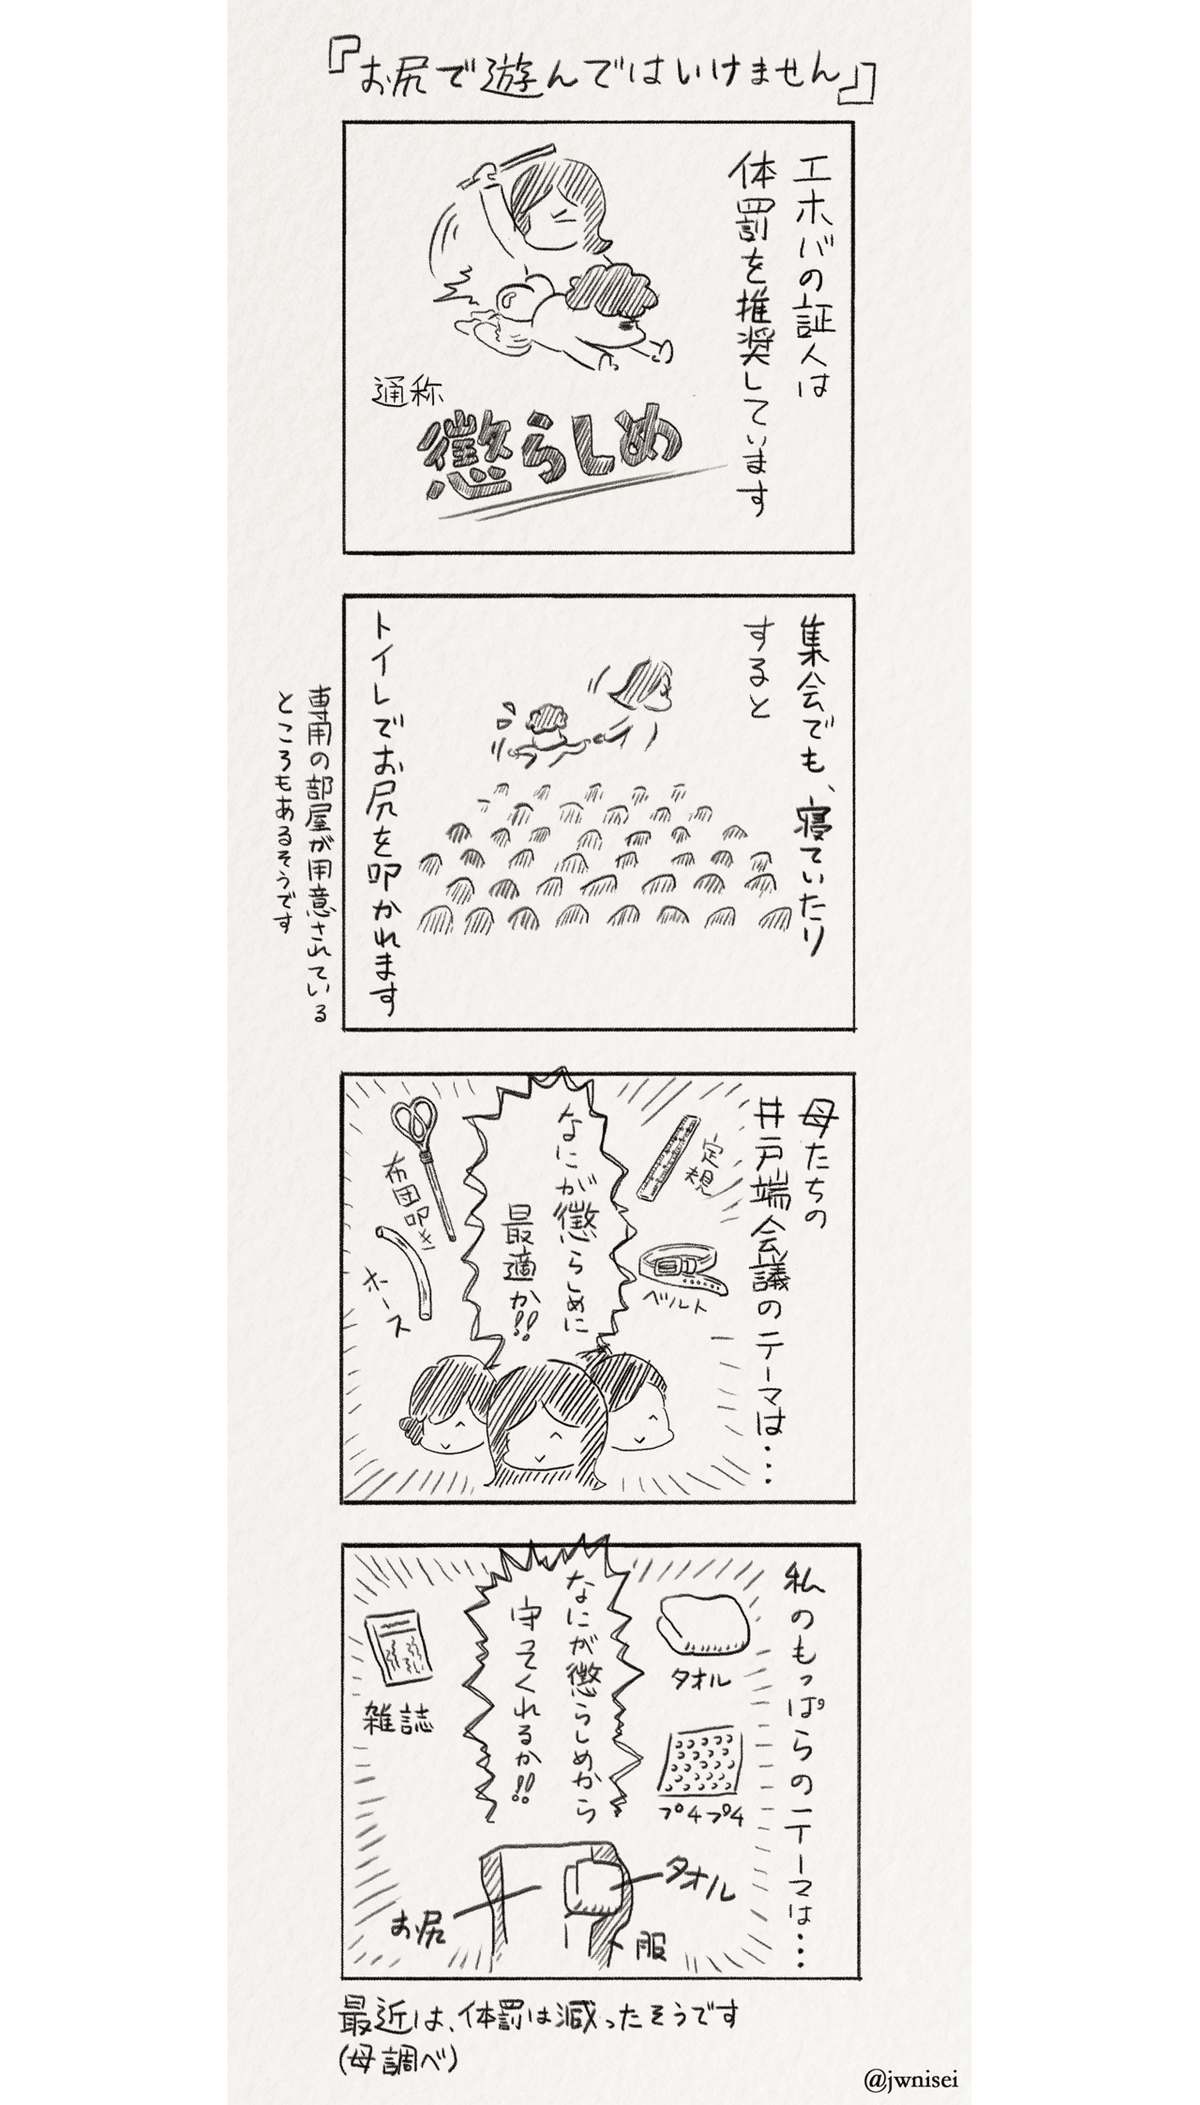 『お尻で遊んではいけません』
エホバの証人は
体罰を推奨しています
通称
懲らしめ
集会でも、寝ていたり
すると
トイレでお尻を叩かれます
専用の部屋が用意されている
ところもあるそうです
母たちの
井戸端会議のテーマは・・・
定規
ベルト
なにが懲らしめに
最適か!!
布団叩き
ホース
私のもっぱらのテーマは・・・
タオル
プチプチ
なにが懲らしめから
守ってくれるか!!
雑誌
タオル
お尻
服
最近は、体罰は減ったそうです
(母調べ)
@jwnisei